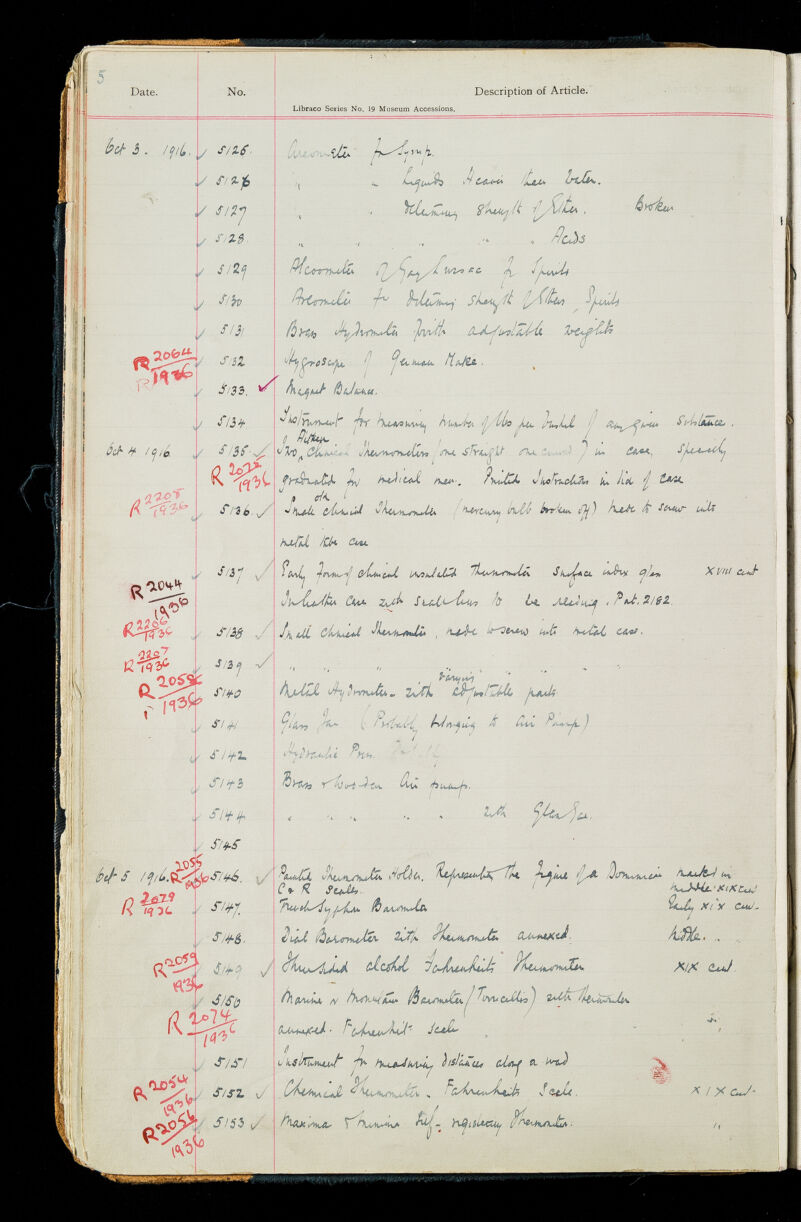 5
Date. No. Description of Article.
Libraco Series No. 19 Museum Accessions.
Oct 3. 1916. 5125. Areometer for Syrup.
5126 " " Liquids Heavier than Water.
5127 " " determing Strength of Ether. Broken
5128. " " " " " Acids
5129 Alcoometer of Gay Lussac for Spirits
5130 Areometer for determing strength of Ethers, Spirits
5131 Brass Hydrometer with adjustable weights
R 2064 / 1936 5132 Hygroscope of German Make.
5133. Magnet Balance.
5134 Instrument for measuring number of lbs per bushel of any given substance.
Oct 4 1916 5135. Two Clinical Thermometers (one straight one curved) in case, specially
R / 1936 graduated for medical men. Printed Instructions in lid of case
R 2208 / 1936 5136. Small old clinical Thermometer (mercury bulb broken off) made to screw into
metal tube case
5137 Early form of clinical thermometer surface index glass XVIII cent
R 2044 / 1936 In leather case with scale lens to be reading. Pat. 2182.
R 2206 / 1936 5138 Small Clinical Thermometer, made to screw into metal case.
R 2207 / 1936 5139 " " " " " "
R 2058 / 1936 5140 Metal Hydrometer - with varying adjustable parts
5141 Glass Jar (Probably belonging to Air Pump)
5142 Hydraulic Press.
5143 Brass & Wooden Air pump.
5144 " " " " " with Glass Jar.
5145
Oct 5 1916. R 2055 / 1936 5146. Painted Thermometer Holder. Representing the Figure of a Dominican marked in
C & R Scales. middle XIX cent
R 2079 / 1936 5147. French Syphon Barometer Early XIX cen-
5148. Dial Barometer with Thermometer annexed. Middle. "
R 2059 / 1936 5149 Three sided alcohol Fahrenheits Thermometer XIX cent
5150 Marine or Mountain Barometer (Torricellis) with thermometer
R 2074 / 1936 annexed. Fahrenheit Scale "
5151 Instrument for measuring distances along a road
R 2054 / 1936 5152 Chemical Thermometer - Fahrenheits Scale. XIX cent-
R 2056 / 1936 5153 Maxima & Minima Self-registering Thermometer. "